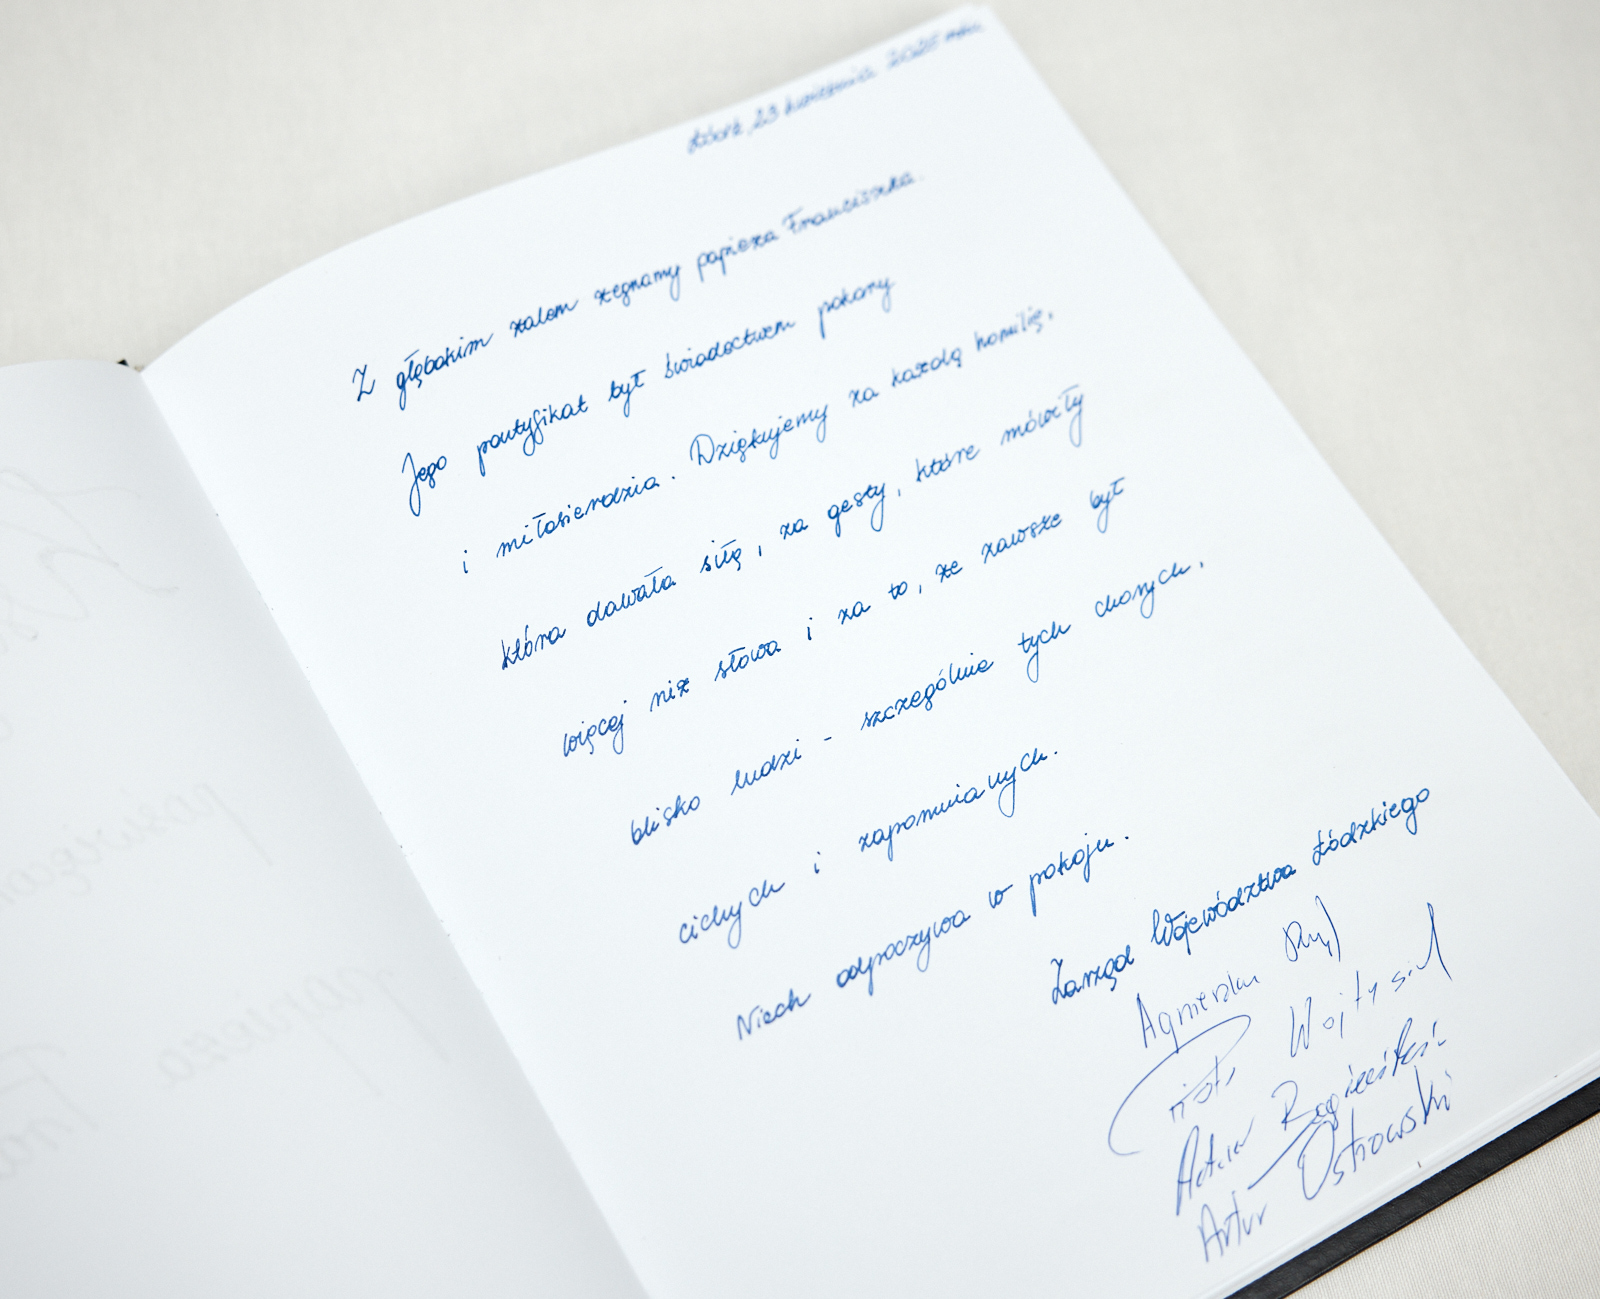 Łódź, 23 kwietnia 2025 roku
Z głębokim żalem żegnamy papieża Franciszka.
Jego pontyfikat był świadectwem pokory
i miłosierdzia. Dziękujemy za każdą homilię,
która dawała siłę, za gesty, które mówiły
więcej niż słowa i za to, że zawsze był
blisko ludzi - szczególnie tych chorych,
cichych i zapomnianych.
Niech odpoczywa w pokoju.
Zarząd Województwa Łódzkiego
Agnieszka Ryś
Piotr Wojtysiak
Artur
Artur Ostrowski